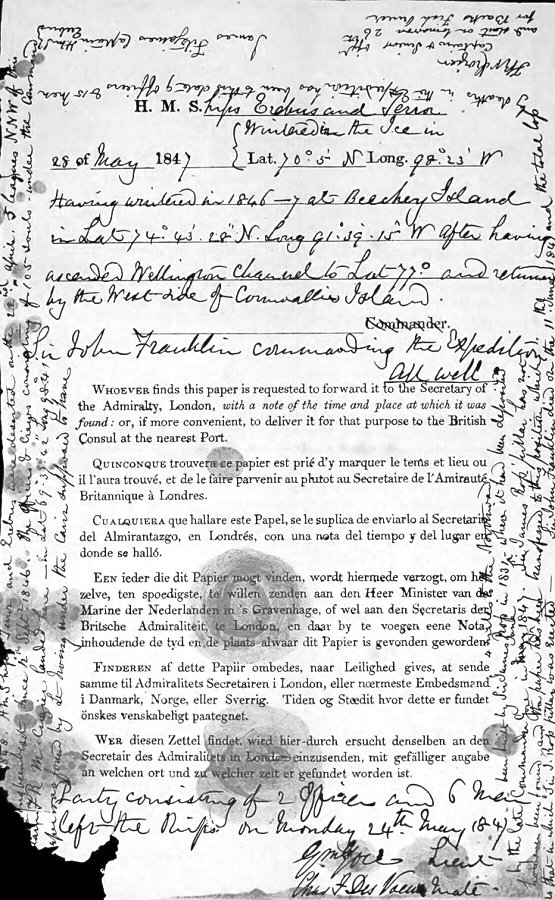 H. M. Ships Erebus and Terror
Wintered in the Ice in
28 of May 1847 Lat. 70° 5' N Long. 98° 23' W
Having wintered in 1846–7 at Beechey Island
in Lat 74° 43' 28" N. Long 91° 39' 15" W After having
ascended Wellington Channel to Lat 77° and returned
by the West side of Cornwallis Island.
Commander.
Sir John Franklin commanding the Expedition
All well
WHOEVER finds this paper is requested to forward it to the Secretary of
the Admiralty, London, with a note of the time and place at which it was
found: or, if more convenient, to deliver it for that purpose to the British
Consul at the nearest Port.
QUINCONQUE trouvera ce papier est prié d'y marquer le tems et lieu ou
il l'aura trouvé, et de le faire parvenir au plutot au Secretaire de l'Amirauté
Britannique à Londres.
CUALQUIERA que hallare este Papel, se le suplica de enviarlo al Secretario
del Almirantazgo, en Londrés, con una nota del tiempo y del lugar en
donde se halló.
EEN ieder die dit Papier mogt vinden, wordt hiermede verzogt, om het
zelve, ten spoedigste, te willen zenden aan den Heer Minister van de
Marine der Nederlanden in 's Gravenhage, of wel aan den Secretaris der
Britsche Admiraliteit, te London, en daar by te voegen eene Nota,
inhoudende de tyd en de plaats alwaar dit Papier is gevonden geworden.
FINDEREN af dette Papiir ombedes, naar Leilighed gives, at sende
samme til Admiralitets Secretairen i London, eller nœrmeste Embedsmand
i Danmark, Norge, eller Sverrig. Tiden og Stœdit hvor dette er fundet
önskes venskabeligt paategnet.
WER diesen Zettel findet, wird hier-durch ersucht denselben an den
Secretair des Admiralitets in London einzusenden, mit gefälliger angabe
an welchen ort und zu welcher zeit er gefundet worden ist.
Party consisting of 2 Officers and 6 Men
left the Ships on Monday 24th May 1847
Gm Gore Lieut
Chas F Des Voeux Mate
848 HM Ships Terror and Erebus were deserted on the 22nd April 5 leagues NNW of this
having been beset since 12th Sept 1846. The officers & crews consisting of 105 souls under the command
tain F.R.M. Crozier landed here — in Lat 69° 37' 42" Long 98° 41'
paper was found by Lt Irving under the Cairn supposed to have
been built by Sir James Ross in 1831 where it had been deposited
4 miles to the Northward
by the late Commander Gore in June 1847 Sir James Ross' pillar has not
however been found and the paper has been transferred to this position which
is that in which Sir J. Ross pillar was erected Sir John Franklin died on the 11th June 1847 and the total loss
by deaths in the Expedition has been to this date 9 officers & 15 men
James Fitzjames Captain HMS Erebus
FRM Crozier
Captain & Senior Offr
and start on tomorrow 26th
for Backs Fish River